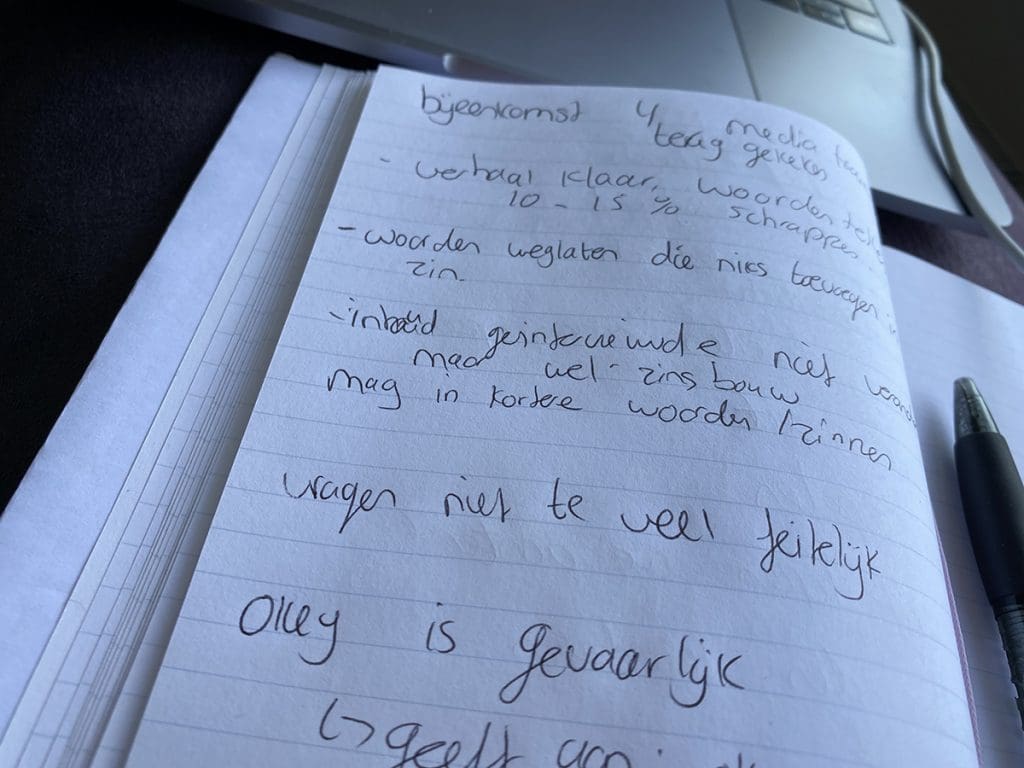 bijeenkomst 4 media team
terug gekeken
- verhaal klaar, woorden
10 - 15 % schrappen.
- woorden weglaten die niks toevoegen
zin.
- inhoud geinterviewde niet
maar wel zinsbouw
mag in kortere woorden/zinnen
vragen niet te veel feitelijk
Okey is gevaarlijk
↳ geeft aan